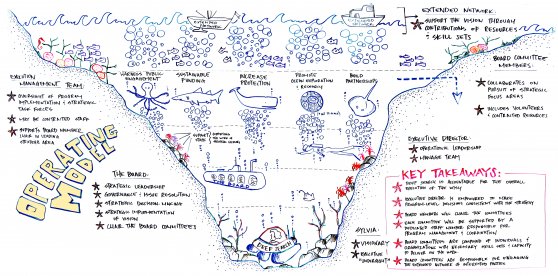 EXTENDED NETWORK:
★ SUPPORT THE VISION THROUGH
CONTRIBUTIONS OF RESOURCES
& SKILL SETS
EXTENDED
NETWORK
EXTENDED
NETWORK
BOARD COMMITTEE
MEMBERS:
★ COLLABORATES ON
PURSUIT OF STRATEGIC
FOCUS AREAS
★ INCLUDES VOLUNTEERS
& CONTRIBUTED RESOURCES
HARNESS PUBLIC
ENGAGEMENT
SUSTAINABLE
FUNDING
INCREASE
PROTECTION
PROMOTE
OCEAN EXPLORATION
& RESEARCH
BUILD
PARTNERSHIPS
EXECUTION
MANAGEMENT TEAM:
★ OVERSIGHT OF PROGRAM
IMPLEMENTATION & STRATEGIC
TASK FORCES
★ MAY BE CONTRIBUTED STAFF
★ SUPPORTS BOARD MEMBER
LEAD IN LEADING
STRATEGIC AREA
OPERATING
MODEL
SUPPORT
STAFF
THE BOARD:
★ STRATEGIC LEADERSHIP
★ GOVERNANCE & ISSUE RESOLUTION
★ STRATEGIC DECISION MAKING
★ STRATEGIC IMPLEMENTATION
OF VISION
★ CHAIR THE BOARD COMMITTEES
THE BOARD
EXECUTIVE DIRECTOR:
★ OPERATIONAL LEADERSHIP
★ MANAGE TEAM
DEEP SEARCH
SYLVIA:
★ VISIONARY
★ EXECUTIVE
OVERSIGHT
KEY TAKEAWAYS:
★ DEEP SEARCH IS ACCOUNTABLE FOR THE OVERALL
EXECUTION OF THE WISH
★ EXECUTIVE DIRECTOR IS EMPOWERED TO MAKE
OPERATIONAL DECISIONS CONSISTENT WITH THE STRATEGY
★ BOARD MEMBERS WILL CHAIR THE COMMITTEES
★ EACH COMMITTEE WILL BE SUPPORTED BY A
DEDICATED STAFF MEMBER RESPONSIBLE FOR
PROGRAM MANAGEMENT & COORDINATION
★ BOARD COMMITTEES ARE COMPOSED OF INDIVIDUALS &
CORPORATIONS WITH NECESSARY SKILL SETS & CAPACITY
TO DELIVER IN THE AREA
★ BOARD COMMITTEES ARE RESPONSIBLE FOR MANAGING
THE EXTENDED NETWORK OF INTERESTED PARTIES